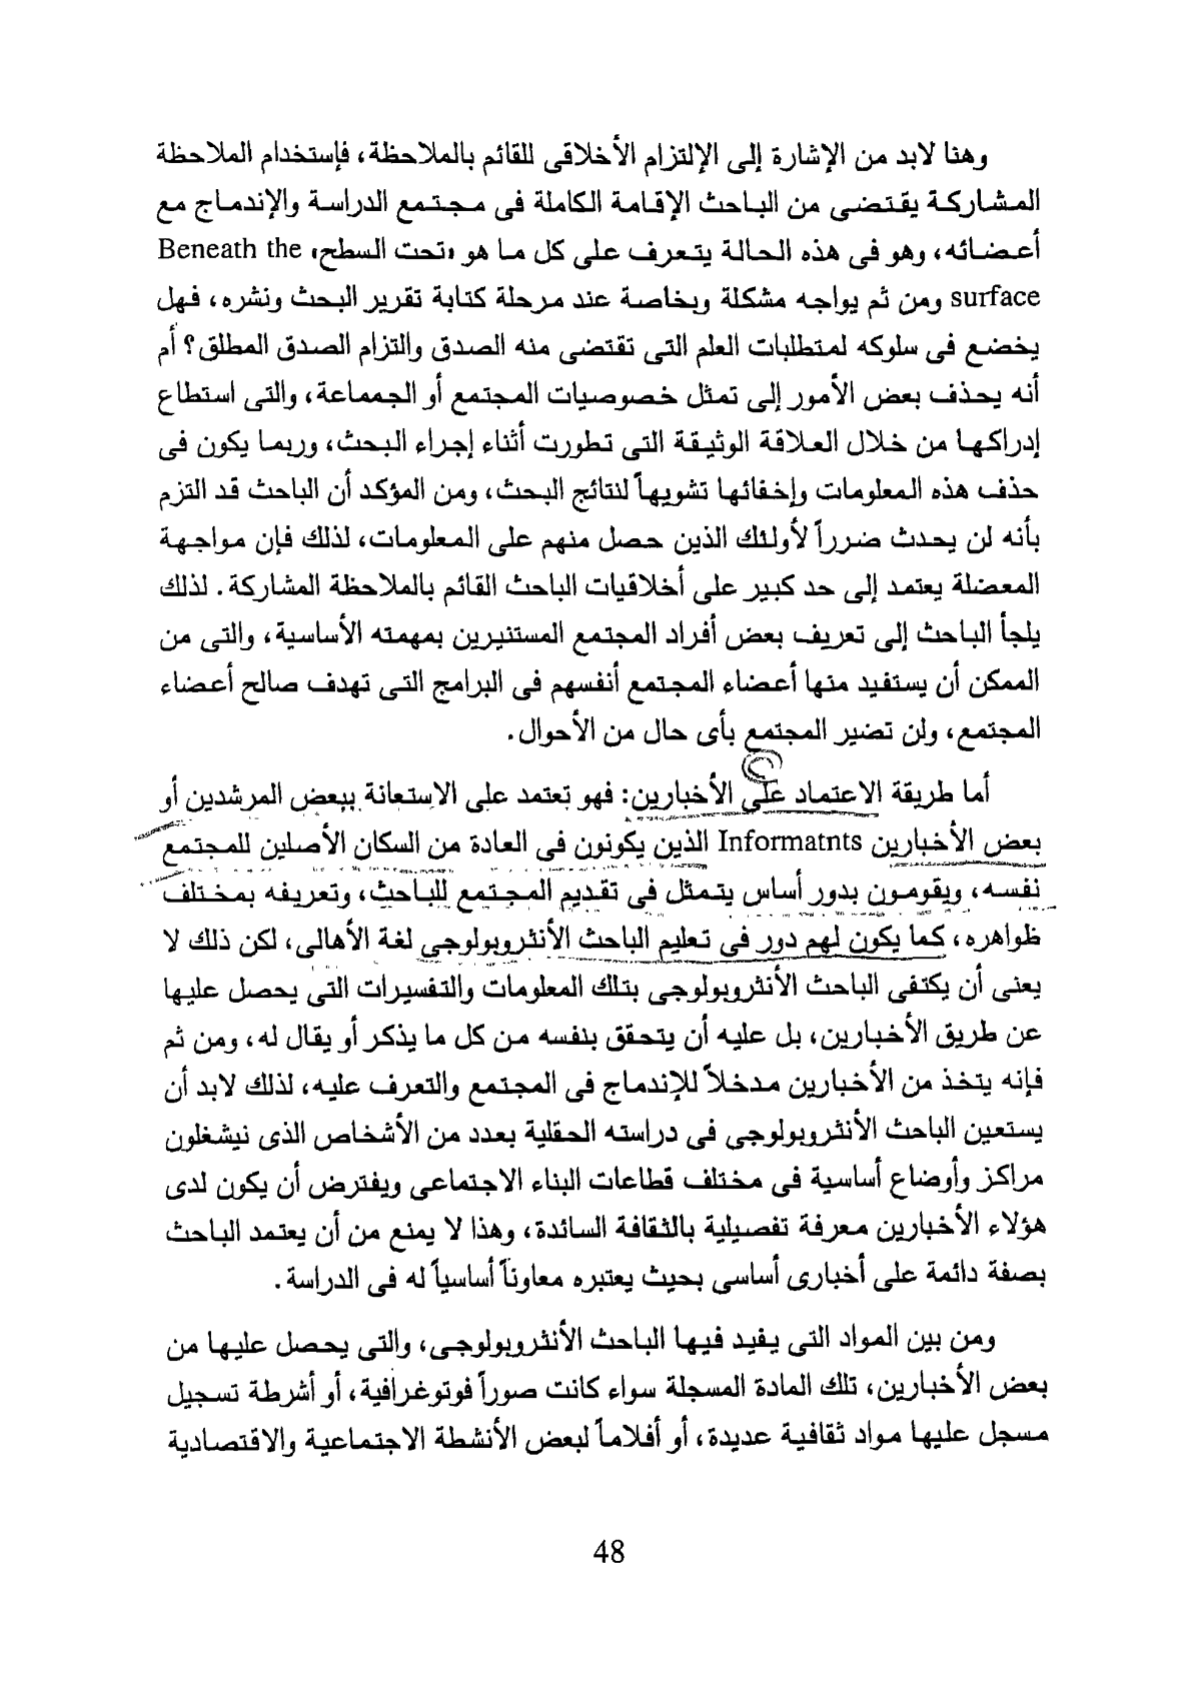 وهنا لابد من الإشارة إلى الإلتزام الأخلاقى للقائم بالملاحظة، فإستخدام الملاحظة
المشاركة يقتضى من الباحث الإقامة الكاملة فى مجتمع الدراسة والإندماج مع
أعضائه، وهو فى هذه الحالة يتعرف على كل ما هو «تحت السطح» Beneath the
surface ومن ثم يواجه مشكلة وبخاصة عند مرحلة كتابة تقرير البحث ونشره، فهل
يخضع فى سلوكه لمتطلبات العلم التى تقتضى منه الصدق والتزام الصدق المطلق؟ أم
أنه يحذف بعض الأمور إلى تمثل خصوصيات المجتمع أو الجمماعة، والتى استطاع
إدراكها من خلال العلاقة الوثيقة التى تطورت أثناء إجراء البحث، وربما يكون فى
حذف هذه المعلومات وإخفائها تشويهاً لنتائج البحث، ومن المؤكد أن الباحث قد التزم
بأنه لن يحدث ضرراً لأولئك الذين حصل منهم على المعلومات، لذلك فإن مواجهة
المعضلة يعتمد إلى حد كبير على أخلاقيات الباحث القائم بالملاحظة المشاركة. لذلك
يلجأ الباحث إلى تعريف بعض أفراد المجتمع المستنيرين بمهمته الأساسية، والتى من
الممكن أن يستفيد منها أعضاء المجتمع أنفسهم فى البرامج التى تهدف صالح أعضاء
المجتمع، ولن تضير المجتمع بأى حال من الأحوال.
أما طريقة الاعتماد على الأخبارين: فهو تعتمد على الاستعانة ببعض المرشدين أو
بعض الأخبارين Informatnts الذين يكونون فى العادة من السكان الأصلين للمجتمع
نفسه، ويقومون بدور أساس يتمثل فى تقديم المجتمع للباحث، وتعريفه بمختلف
ظواهره، كما يكون لهم دور فى تعليم الباحث الأنثروبولوجى لغة الأهالى، لكن ذلك لا
يعنى أن يكتفى الباحث الأنثروبولوجى بتلك المعلومات والتفسيرات التى يحصل عليها
عن طريق الأخبارين، بل عليه أن يتحقق بنفسه من كل ما يذكر أو يقال له، ومن ثم
فإنه يتخذ من الأخبارين مدخلاً للإندماج فى المجتمع والتعرف عليه، لذلك لابد أن
يستعين الباحث الأنثروبولوجى فى دراسته الحقلية بعدد من الأشخاص الذى نيشغلون
مراكز وأوضاع أساسية فى مختلف قطاعات البناء الاجتماعى ويفترض أن يكون لدى
هؤلاء الأخبارين معرفة تفصيلية بالثقافة السائدة، وهذا لا يمنع من أن يعتمد الباحث
بصفة دائمة على أخبارى أساسى بحيث يعتبره معاوناً أساسياً له فى الدراسة.
ومن بين المواد التى يفيد فيها الباحث الأنثروبولوجى، والتى يحصل عليها من
بعض الأخبارين، تلك المادة المسجلة سواء كانت صوراً فوتوغرافية، أو أشرطة تسجيل
مسجل عليها مواد ثقافية عديدة، أو أفلاماً لبعض الأنشطة الاجتماعية والاقتصادية
48